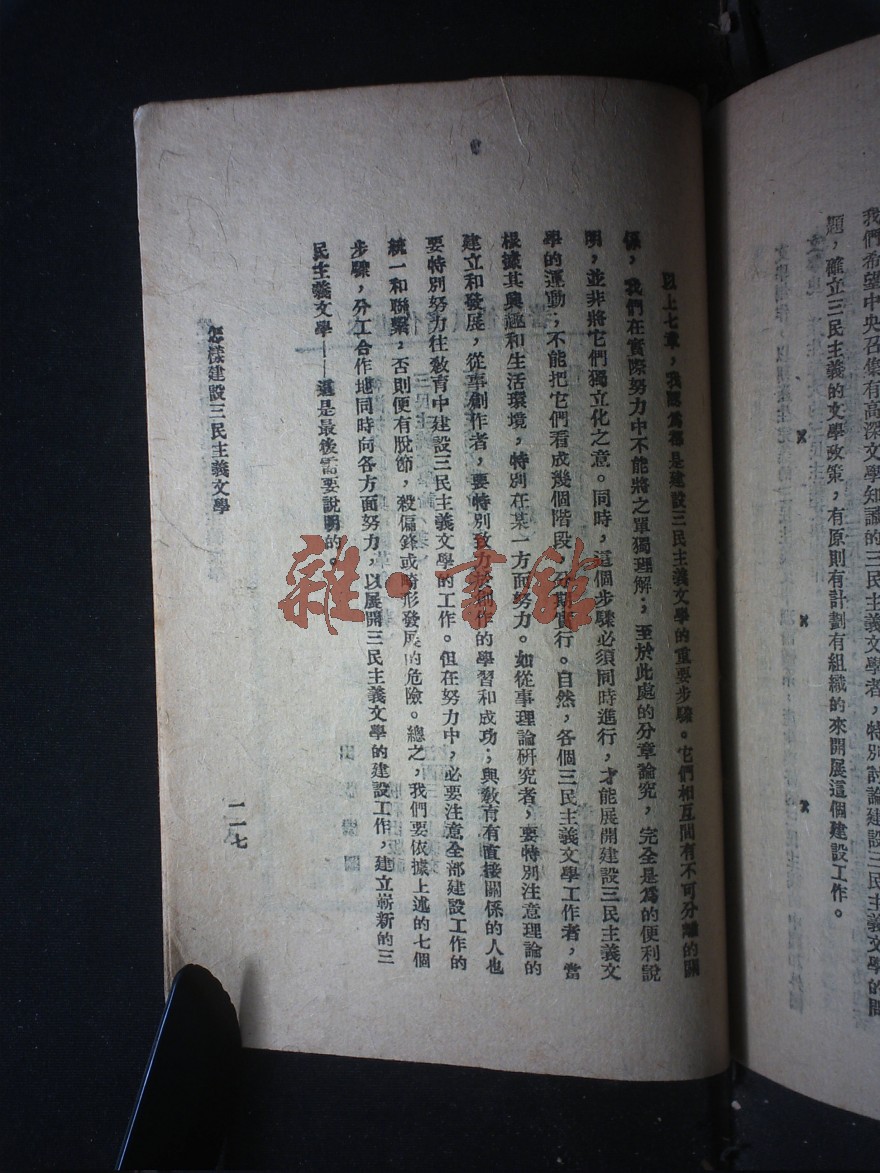 我們希望中央召集有高深文學知識的三民主義文學者，特別討論建設三民主義文學的問
題，確立三民主義的文學政策，有原則有計劃有組織的來開展這個建設工作。
× × ×
以上七章，我認爲都是建設三民主義文學的重要步驟。它們相互間有不可分離的關
係，我們在實際努力中不能將之單獨理解；至於此處的分章論究，完全是爲的便利說
明，並非將它們獨立化之意。同時，這個步驟必須同時進行，才能展開建設三民主義文
學的運動；不能把它們看成幾個階段，分期實行。自然，各個三民主義文學工作者，當
根據其興趣和生活環境，特別在某一方面努力。如從事理論研究者，要特別注意理論的
建立和發展，從事創作者，要特別致力於創作的學習和成功；與教育有直接關係的人也
要特別努力往教育中建設三民主義文學的工作。但在努力中，必要注意全部建設工作的
統一和聯繫，否則便有脫節，殺偏鋒或畸形發展的危險。總之，我們要依據上述的七個
步驟，分工合作地同時向各方面努力，以展開三民主義文學的建設工作，建立嶄新的三
民主義文學——這是最後需要說明的。
怎樣建設三民主義文學
一一七
雜·書館